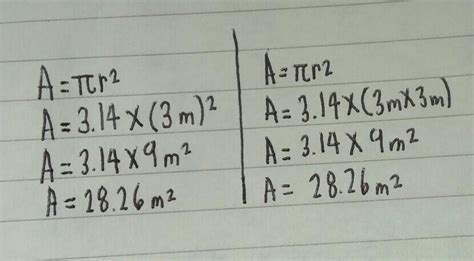 A = πr²
A = 3.14 X (3 m)²
A = 3.14 X 9 m²
A = 28.26 m²
A = πr²
A = 3.14 X (3m X 3m)
A = 3.14 X 9 m²
A = 28.26 m²